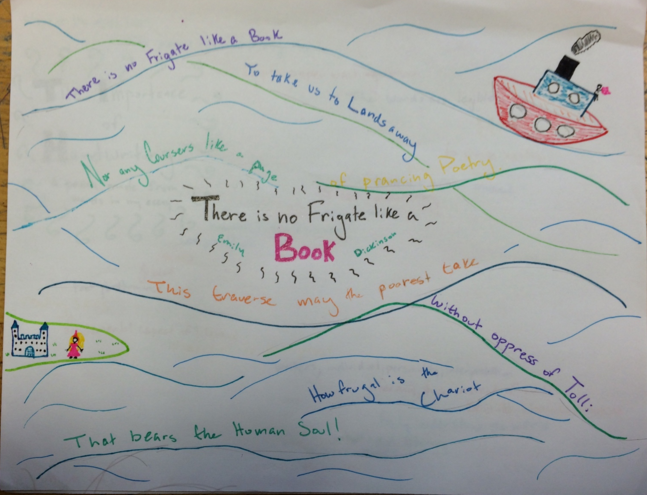 There is no Frigate like a Book
To take us to Lands away
Nor any Coursers like a page
of prancing Poetry
There is no Frigate like a
Book
Emily Dickinson
This traverse may the poorest take
without oppress of Toll:
How frugal is the
Chariot
That bears the Human Soul!